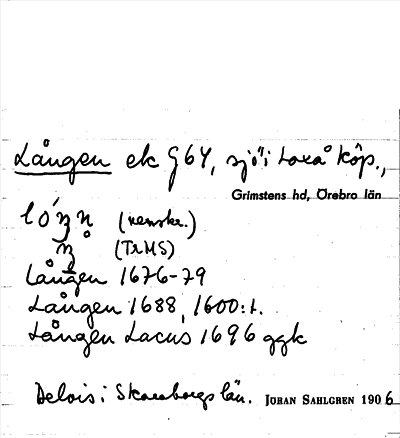 Lången ek G6Y, sjö i Laxå köp.,
Grimstens hd, Örebro län
(renskr.)
(TrMS)
Lången 1676-79
Lången 1688, 1600:t.
Lången Lacus 1696 ggk
Delvis i Skaraborgs län. JOHAN SAHLGREN 1906